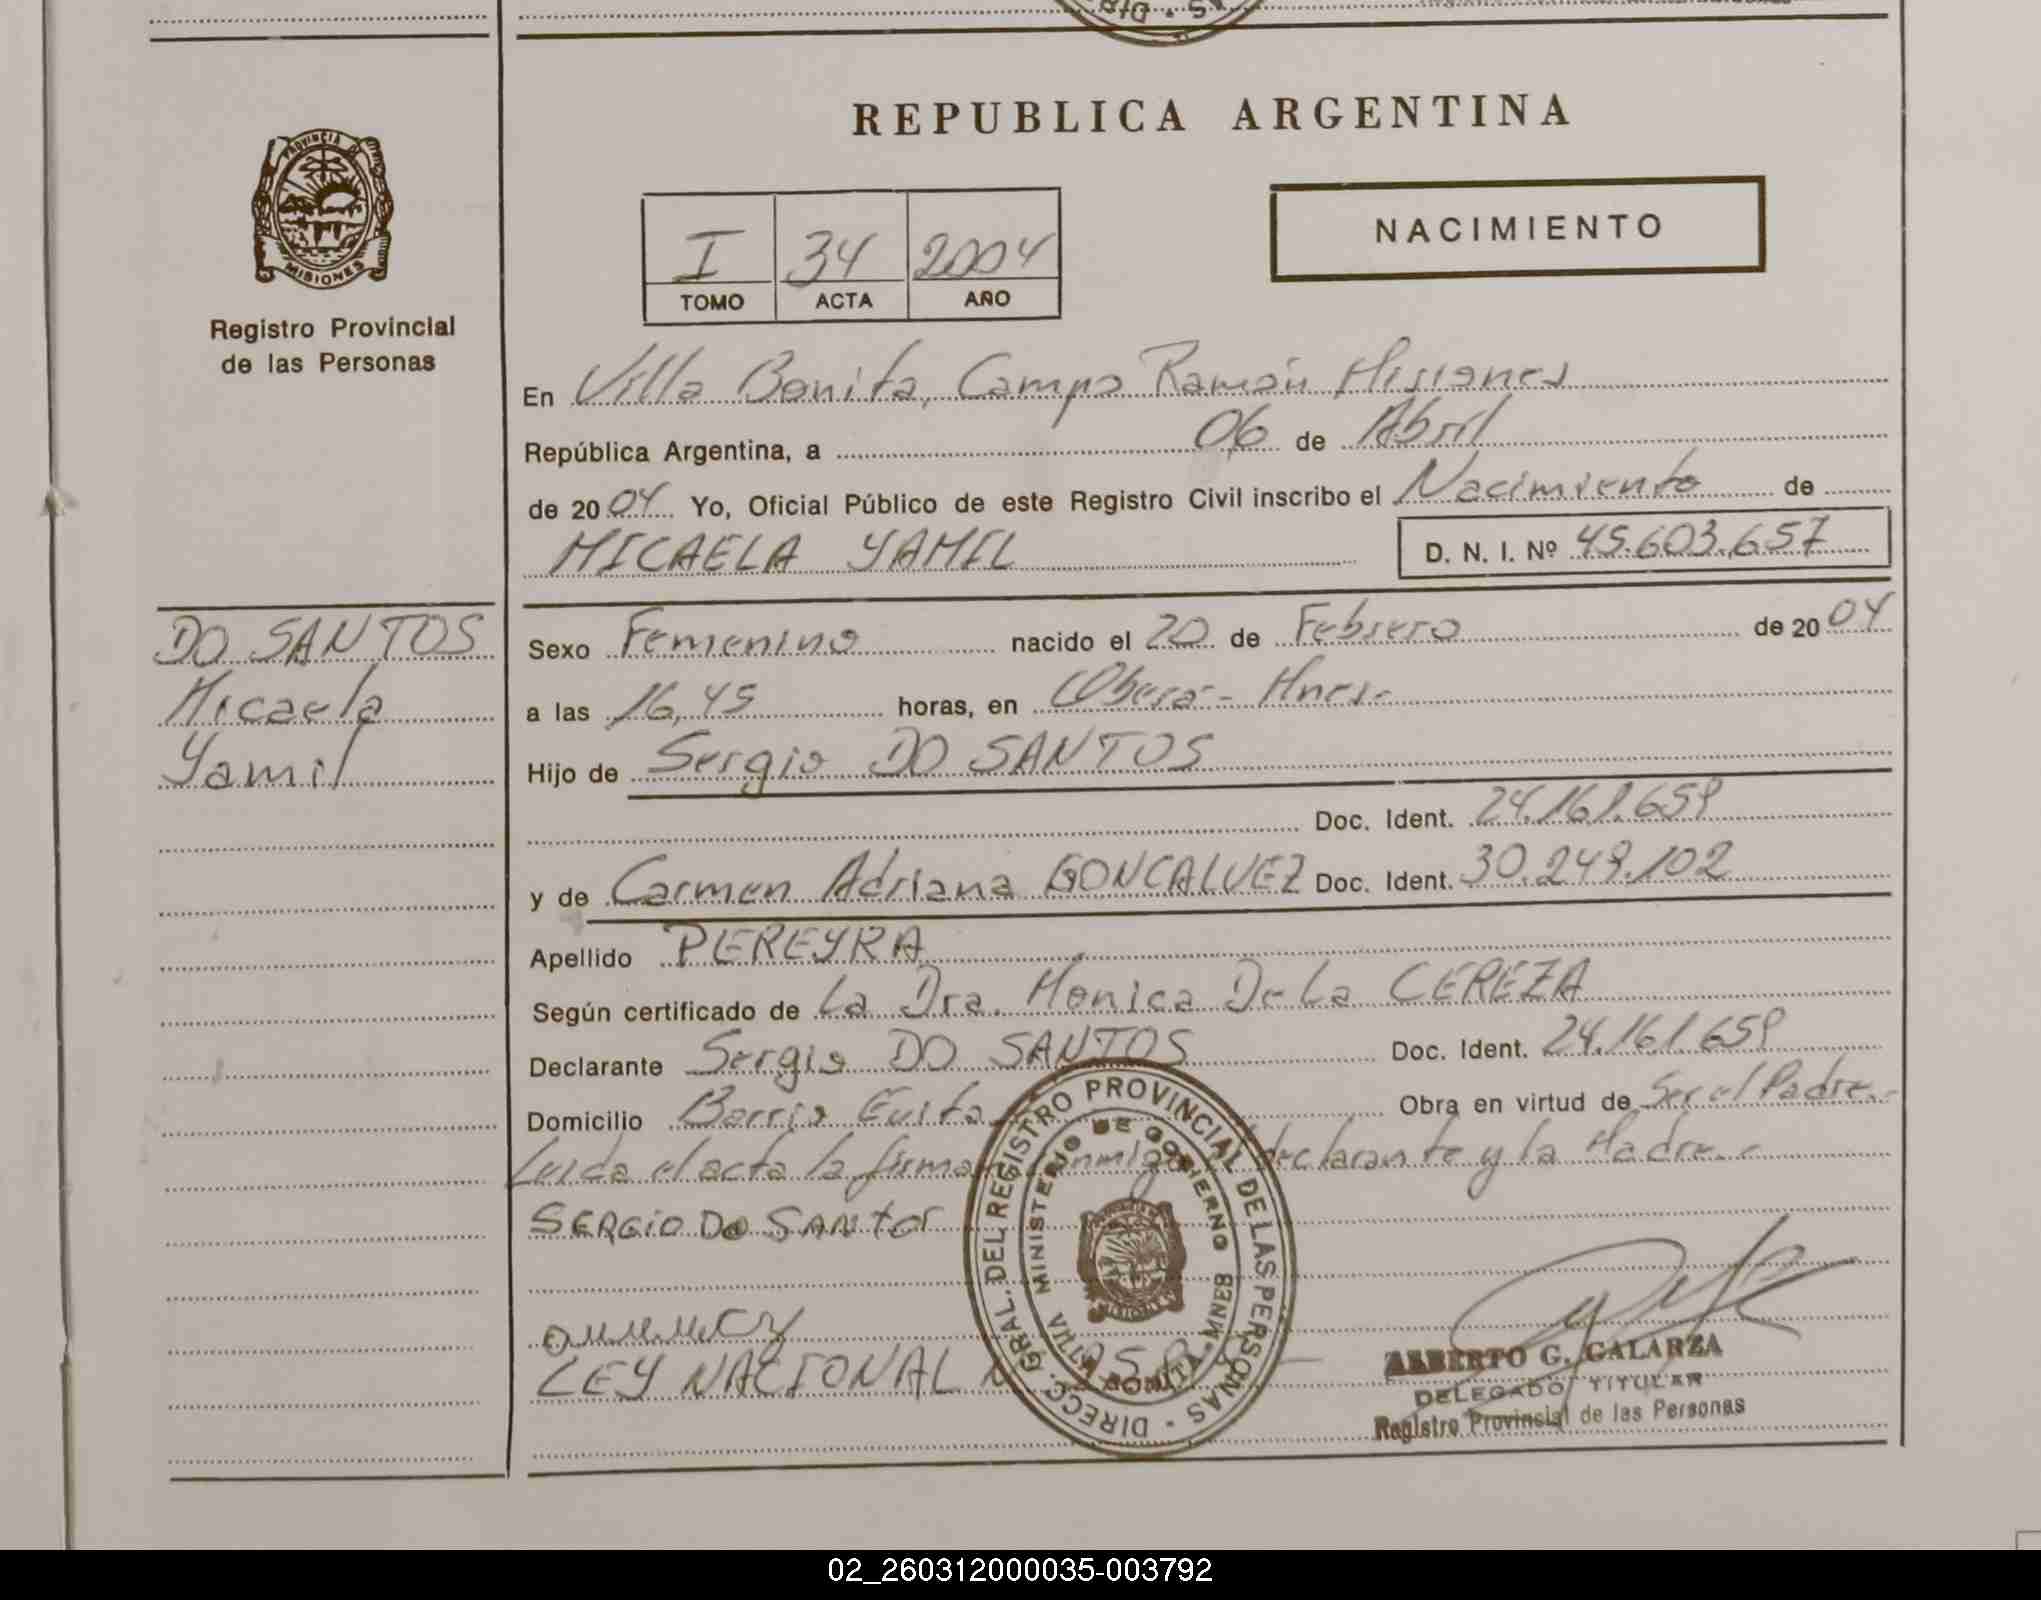 REPUBLICA ARGENTINA
PROVINCIA DE
MISIONES
Registro Provincial
de las Personas
I 34 2004
TOMO ACTA AÑO
NACIMIENTO
En Villa Bonita, Campo Ramón Misiones
República Argentina, a 06 de Abril
de 2004 Yo, Oficial Público de este Registro Civil inscribo el Nacimiento de
MICAELA YAMIL D. N. I. Nº 45.603.657
DO SANTOS
Micaela
Yamil
Sexo Femenino nacido el 20 de Febrero de 2004
a las 16,45 horas, en Oberá - Mnes.-
Hijo de Sergio DO SANTOS
Doc. Ident. 24.161.659
y de Carmen Adriana GONCALVEZ Doc. Ident. 30.249.102
Apellido PEREYRA
Según certificado de La Dra. Mónica De La CEREZA
Declarante Sergio DO SANTOS Doc. Ident. 24.161.659
Domicilio Barrio Evita Obra en virtud de Ser el Padre.-
Leida el acta la firman conmigo declarante y la Madre.-
SERGIO DO SANTOS
LEY NACIONAL
DIRECC. GRAL. DEL REGISTRO PROVINCIAL DE LAS PERSONAS
MINISTERIO DE GOBIERNO
VILLA BONITA - MNES
MISIONES
ALBERTO G. GALARZA
DELEGADO TITULAR
Registro Provincial de las Personas
02_260312000035-003792